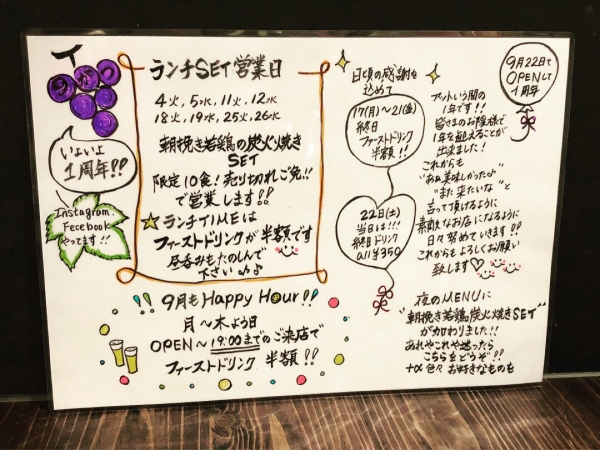 9がつ
いよいよ
1周年!!
Instagram
Fecebook
やってます!!
ランチSET営業日
4火, 5水, 11火, 12水
18火, 19水, 25火, 26水
朝挽き若鶏の炭火焼き
SET
限定10食!売り切れご免!!
で営業します!!
☆ランチTIMEは
ファーストドリンクが半額です
昼呑みもたのしんで
下さい♪♪
!! 9月もHappy Hour!!
月〜木よう日
OPEN〜19:00までのご来店で
ファーストドリンク 半額!!
日頃の感謝を
込めて
17(月)〜21(金)
終日
ファーストドリンク
半額!!
22日(土)
当日は!!!
終日ドリンク
all ¥350
9月22日で
OPENして
1周年
アッという間の
1年です!!
皆さまのお陰様で
1年を迎えることが
出来ました!
これからも
"あぁ美味しかった♪"
"また来たいな"と
言って頂けるように
素敵なお店になるように
日々努めていきます!!
これからもよろしくお願い
致します♡
夜のMENUに
"朝挽き若鶏炭火焼きSET"
が加わりました!!
あれやこれや迷ったら
こちらをどうぞ!!
+α色々お好きなものも